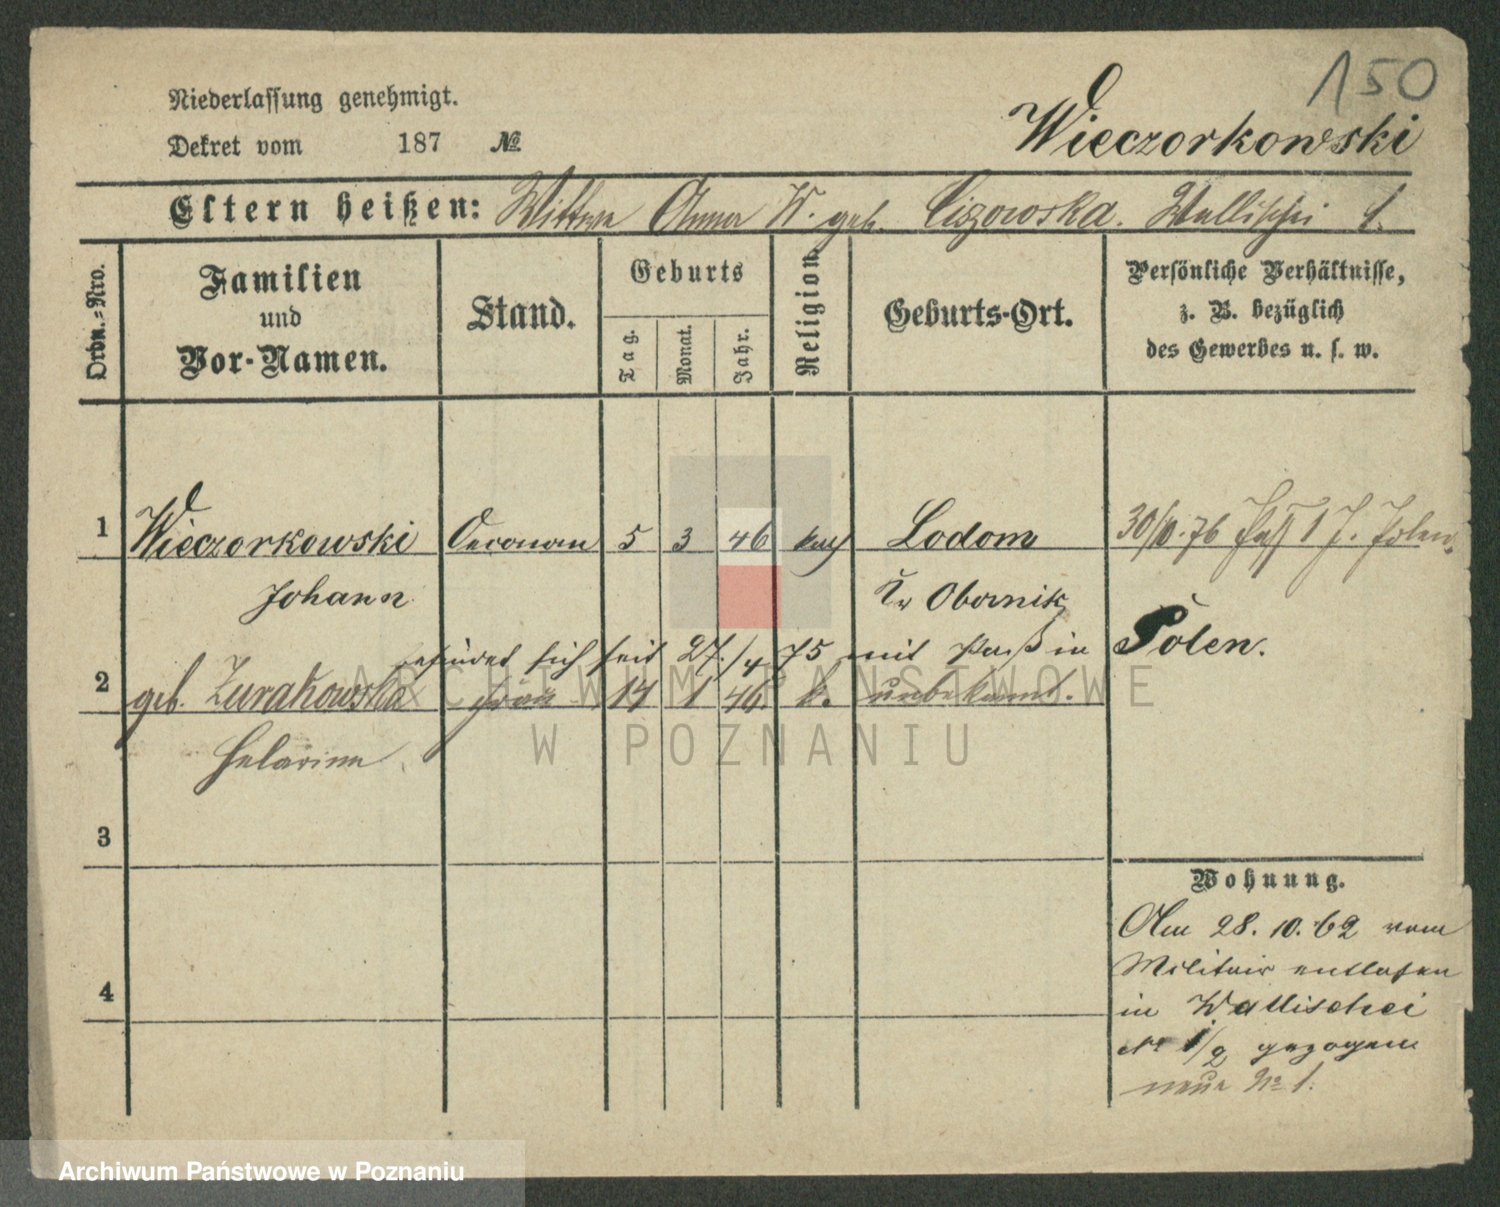 150
Niederlassung genehmigt.
Dekret vom 187 №
Wieczorkowski
Eltern heißen: Wittwe Anna W. geb. Ciszowska. Wallischei 1.
Ordn.-Nro.
Familien
und
Vor-Namen.
Stand.
Geburts
Tag.
Monat.
Jahr.
Religion
Geburts-Ort.
Persönliche Verhältnisse,
z. B. bezüglich
des Gewerbes u. s. w.
1 Wieczorkowski Oeconom 5 3 46 kath Lodom 30/10.76 Paß 1 J. Polen.
Johann Kr Obornik
befindet sich seit 27./4 75 mit Paß in Polen.
2 geb. Zurakowska Frau 14 1 46. k. unbekannt.
3
4
Wohnung.
Am 28. 10. 69 vom
Militair entlassen
in Wallischei
№ 1/2 gezogen
neue № 1.
ARCHIWUM PAŃSTWOWE
W POZNANIU
Archiwum Państwowe w Poznaniu